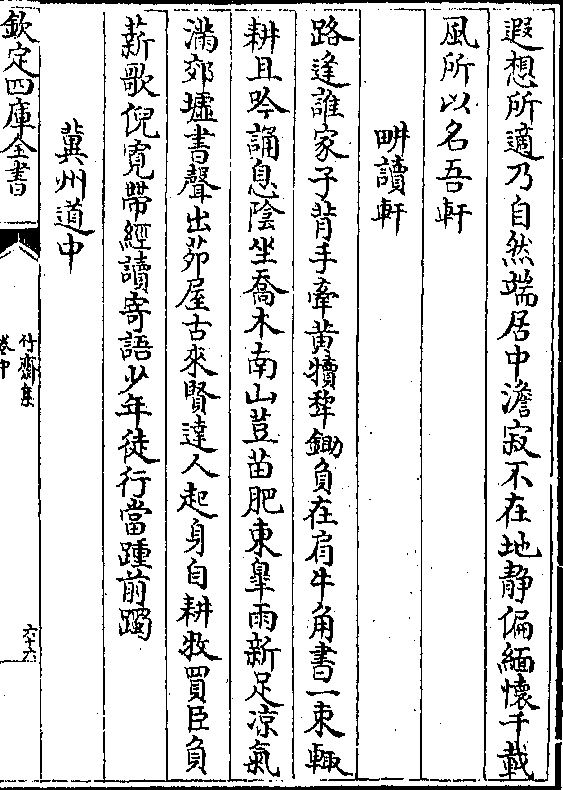 遐想所適乃自然端居中澹寂不在地静偏緬懷千載
風所以名吾軒
畊讀軒
路逢誰家子背手牽黄犢犂鋤負在肩牛角書一束輙
耕且吟誦息陰坐喬木南山荳苗肥東臯雨新足凉氣
滿郊墟書聲出茆屋古來賢達人起身自耕牧買臣負
薪歌倪寛帶經讀寄語少年徒行當踵前躅
冀州道中
欽定四庫全書
竹齋集
卷中
六十六